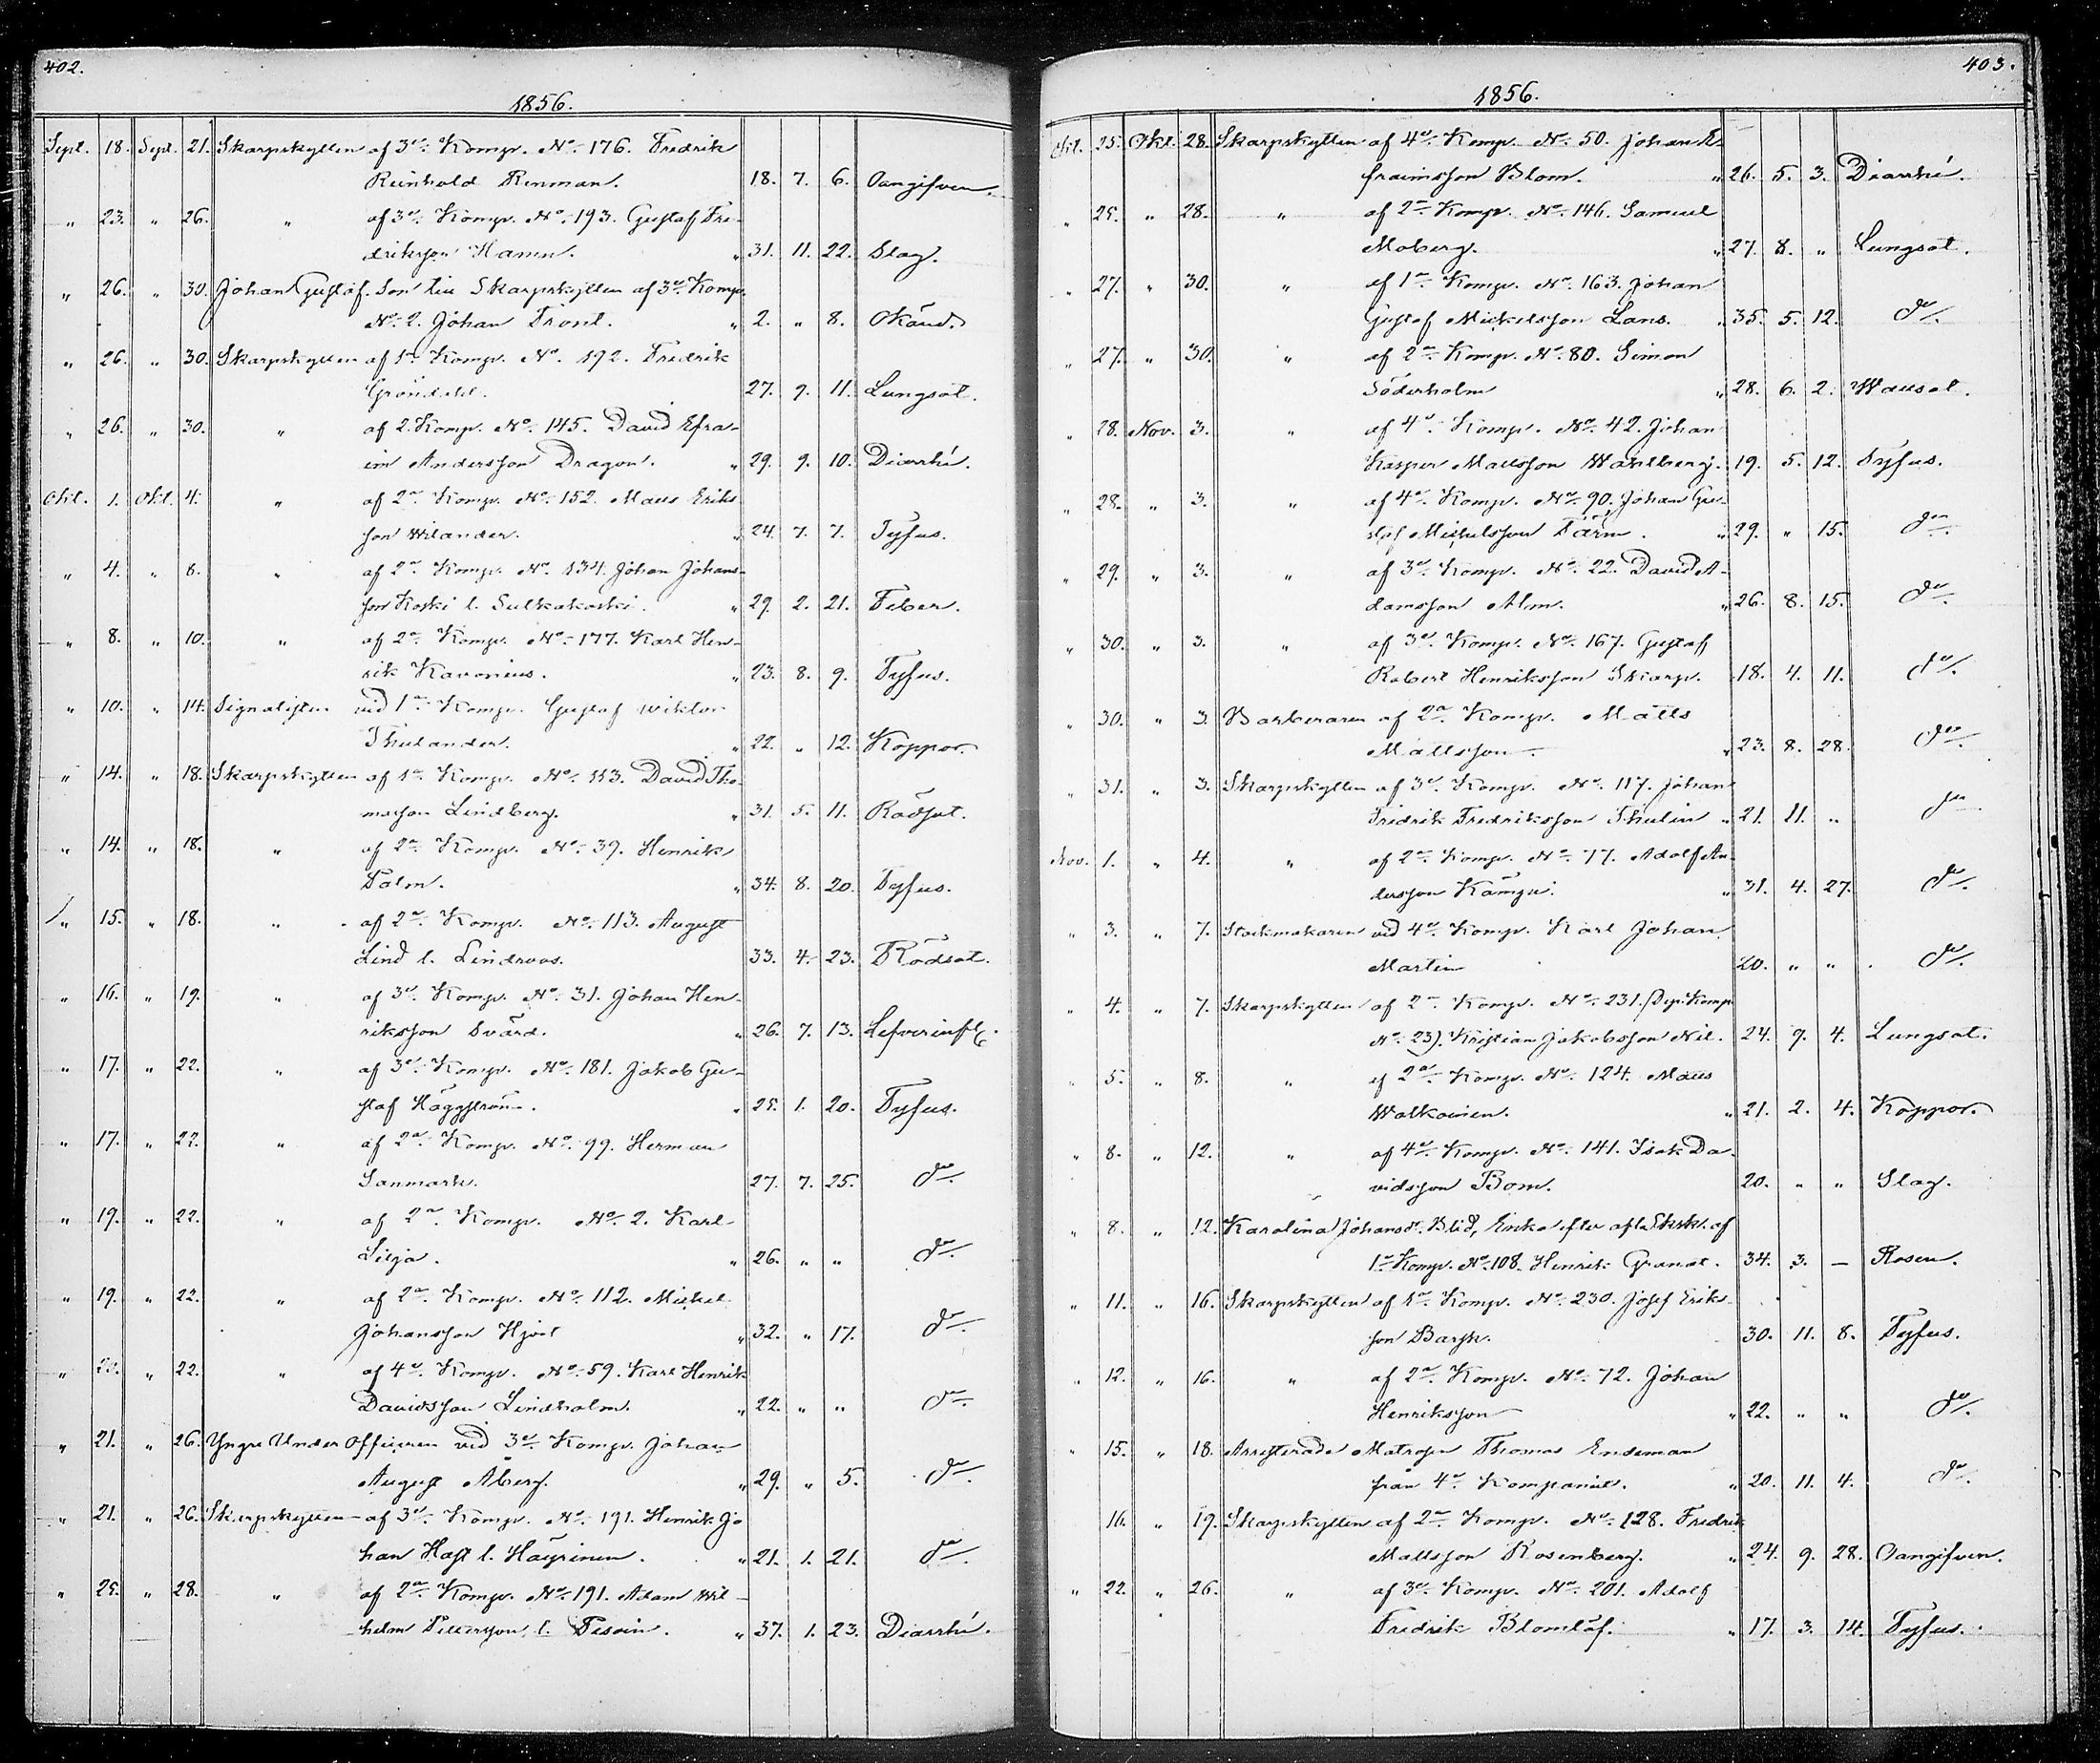 402.
1856.
Sept. 18. Sept. 21. Skarpskytten af 3e Komp. No. 176. Fredrik
Reinhold Renman. 18. 7. 6. Oangifven.
" 23. " 26. " af 3e Komp. No. 193. Gustaf Fre-
driksson Hamn. " 31. 11. 22. Slag.
" 26. " 30. Johan Gustaf. Son till Skarpskytten af 3e Komp.
No. 2. Johan Frost. " 2. " 8. Okänd.
" 26. " 30. Skarpskytten af 1a Komp. No. 192. Fredrik
Gröndahl. 27. 9. 11. Lungsot.
" 26. " 30. " af 2. Komp. No. 145. David Efra-
im Andersson Dragon. " 29. 9. 10. Diarrhé.
Okt. 1. Okt. 4. " af 2a Komp. No. 152. Matts Eriks
son Wilander. " 24. 7. 7. Tyfus.
" 4. " 8. " af 2a Komp. No. 134. Johan Johans-
son Koski l. Sulkakoski. " 29. 2. 21. Feber.
" 8. " 10. " af 2a Komp. No. 177. Karl Hen-
rik Kavonius. " 23. 8. 9. Tyfus.
" 10. " 14. Signalisten vid 1a Komp. Gustaf Wiktor
Thulander. " 22. " 12. Koppor.
" 14. " 18. Skarpskytten af 1a Komp. No. 113. David Tho-
masson Lindberg. " 31. 5. 11. Rödsot.
" 14. " 18. " af 2a Komp. No. 39. Henrik
Palm. " 34. 8. 20. Tyfus.
" 15. " 18. " af 2a Komp. No. 113. August
Lind l. Lindroos. 33. 4. 23. Rödsot.
" 16. " 19. " af 3e Komp. No. 31. Johan Hen-
riksson Svärd. " 26. 7. 13. Lefverinfl.
" 17. " 22. " af 3e Komp. No. 181. Jakob Gu-
staf Häggström. " 25. 1. 20. Tyfus.
" 17. " 22. " af 2a Komp. No. 99. Herman
Sanmark. 27. 7. 25. do
" 19. " 22. " af 2a Komp. No. 2. Karl
Lilja. " 26. " " do
" 19. " 22. " af 2a Komp. No. 112. Mickel
Johansson Hjort " 32. " 17. do
" 20. " 22. " af 4e Komp. No. 59. Karl Henrik
Davidsson Lindholm. " 22. " " do
" 21. " 26. Yngre Under Officeren vid 3e Komp. Johan
August Åberg. " 29. " 5. do
" 21. " 26. Skarpskytten af 3e Komp. No. 191. Henrik Jo
han Hast l. Häyrinen. " 21. 1. 21. do
" 25. " 28. " af 2a Komp. No. 191. Adam Wil-
helm Pettersson l. " 37. 1. 23. Diarrhé.
403.
1856.
Okt. 25. Okt. 28. Skarpskytten af 4e Komp. No. 50. Johan E-
fraimsson Blom. " 26. 5. 3. Diarrhé.
" 25. " 28. " af 2a Komp. No. 146. Samuel
Moberg. " 27. 8. " Lungsot.
" 27. " 30. " af 1a Komp. No. 163. Johan
Gustaf Mickelsson Lans. " 35. 5. 12. do
" 27. " 30. " af 2a Komp. No. 80. Simon
Söderholm " 28. 6. 2. Wattusot.
" 28. Nov. 3. " af 4e Komp. No. 42. Johan
Kasper Mattsson Wahlberg. 19. 5. 12. Tyfus.
" 28. " 3. " af 4e Komp. No. 90. Johan Gu-
staf Mickelsson Tärn. " 29. " 15. do
" 29. " 3. " af 3e Komp. No. 22. David A-
damsson Alm. " 26. 8. 15. do
" 30. " 3. " af 3e Komp. No. 167. Gustaf
Robert Henriksson Skarp. 18. 4. 11. do
" 30. " 3. Barberaren af 2a Komp. Matts
Mattsson " 23. 8. 28. do
" 31. " 3. Skarpskytten af 3e Komp. No. 117. Johan
Fredrik Fredriksson Thulin " 21. 11. " do
Nov. 1. " 4. " af 2a Komp. No. 77. Adolf An-
dersson Kämpe. " 31. 4. 27. do
" 3. " 7. Stockmakaren vid 4e Komp. Karl Johan
Martin 20. " " do
" 4. " 7. Skarpskytten af 2a Komp. No. 231. (Dep. Komp
No. 23). Kristian Jakobsson Nil. 24. 9. 4. Lungsot.
" 5. " 8. " af 2a Komp. No. 124. Matts
Walkoinen. " 21. 2. 4. Koppor.
" 8. " 12. " af 4e Komp. No. 141. Isak Da-
vidsson Bom. 20. " " Slag.
" 8. " 12. Karolina Johansdr. Blid, Enka efter afl. Skrsk. af
1a Komp. No. 108. Henrik Granat. 34. 3. — Rosen.
" 11. " 16. Skarpskytten af 1a Komp. No. 230. Josef Eriks-
son Bargh. 30. 11. 8. Tyfus.
" 12. " 16. " af 2a Komp. No. 72. Johan
Henriksson " 22. " " do
" 15. " 18. Arresterade Matrosen Thomas Enseman
från 4e Kompaniet. " 20. 11. 4. do
16. " 19. Skarpskytten af 2a Komp. No. 128. Fredrik
Mattsson Rosenberg. " 24. 9. 28. Oangifven.
" 22. " 26. " af 3e Komp. No. 201. Adolf
Fredrik Blomlöf. " 17. 3. 14. Tyfus.